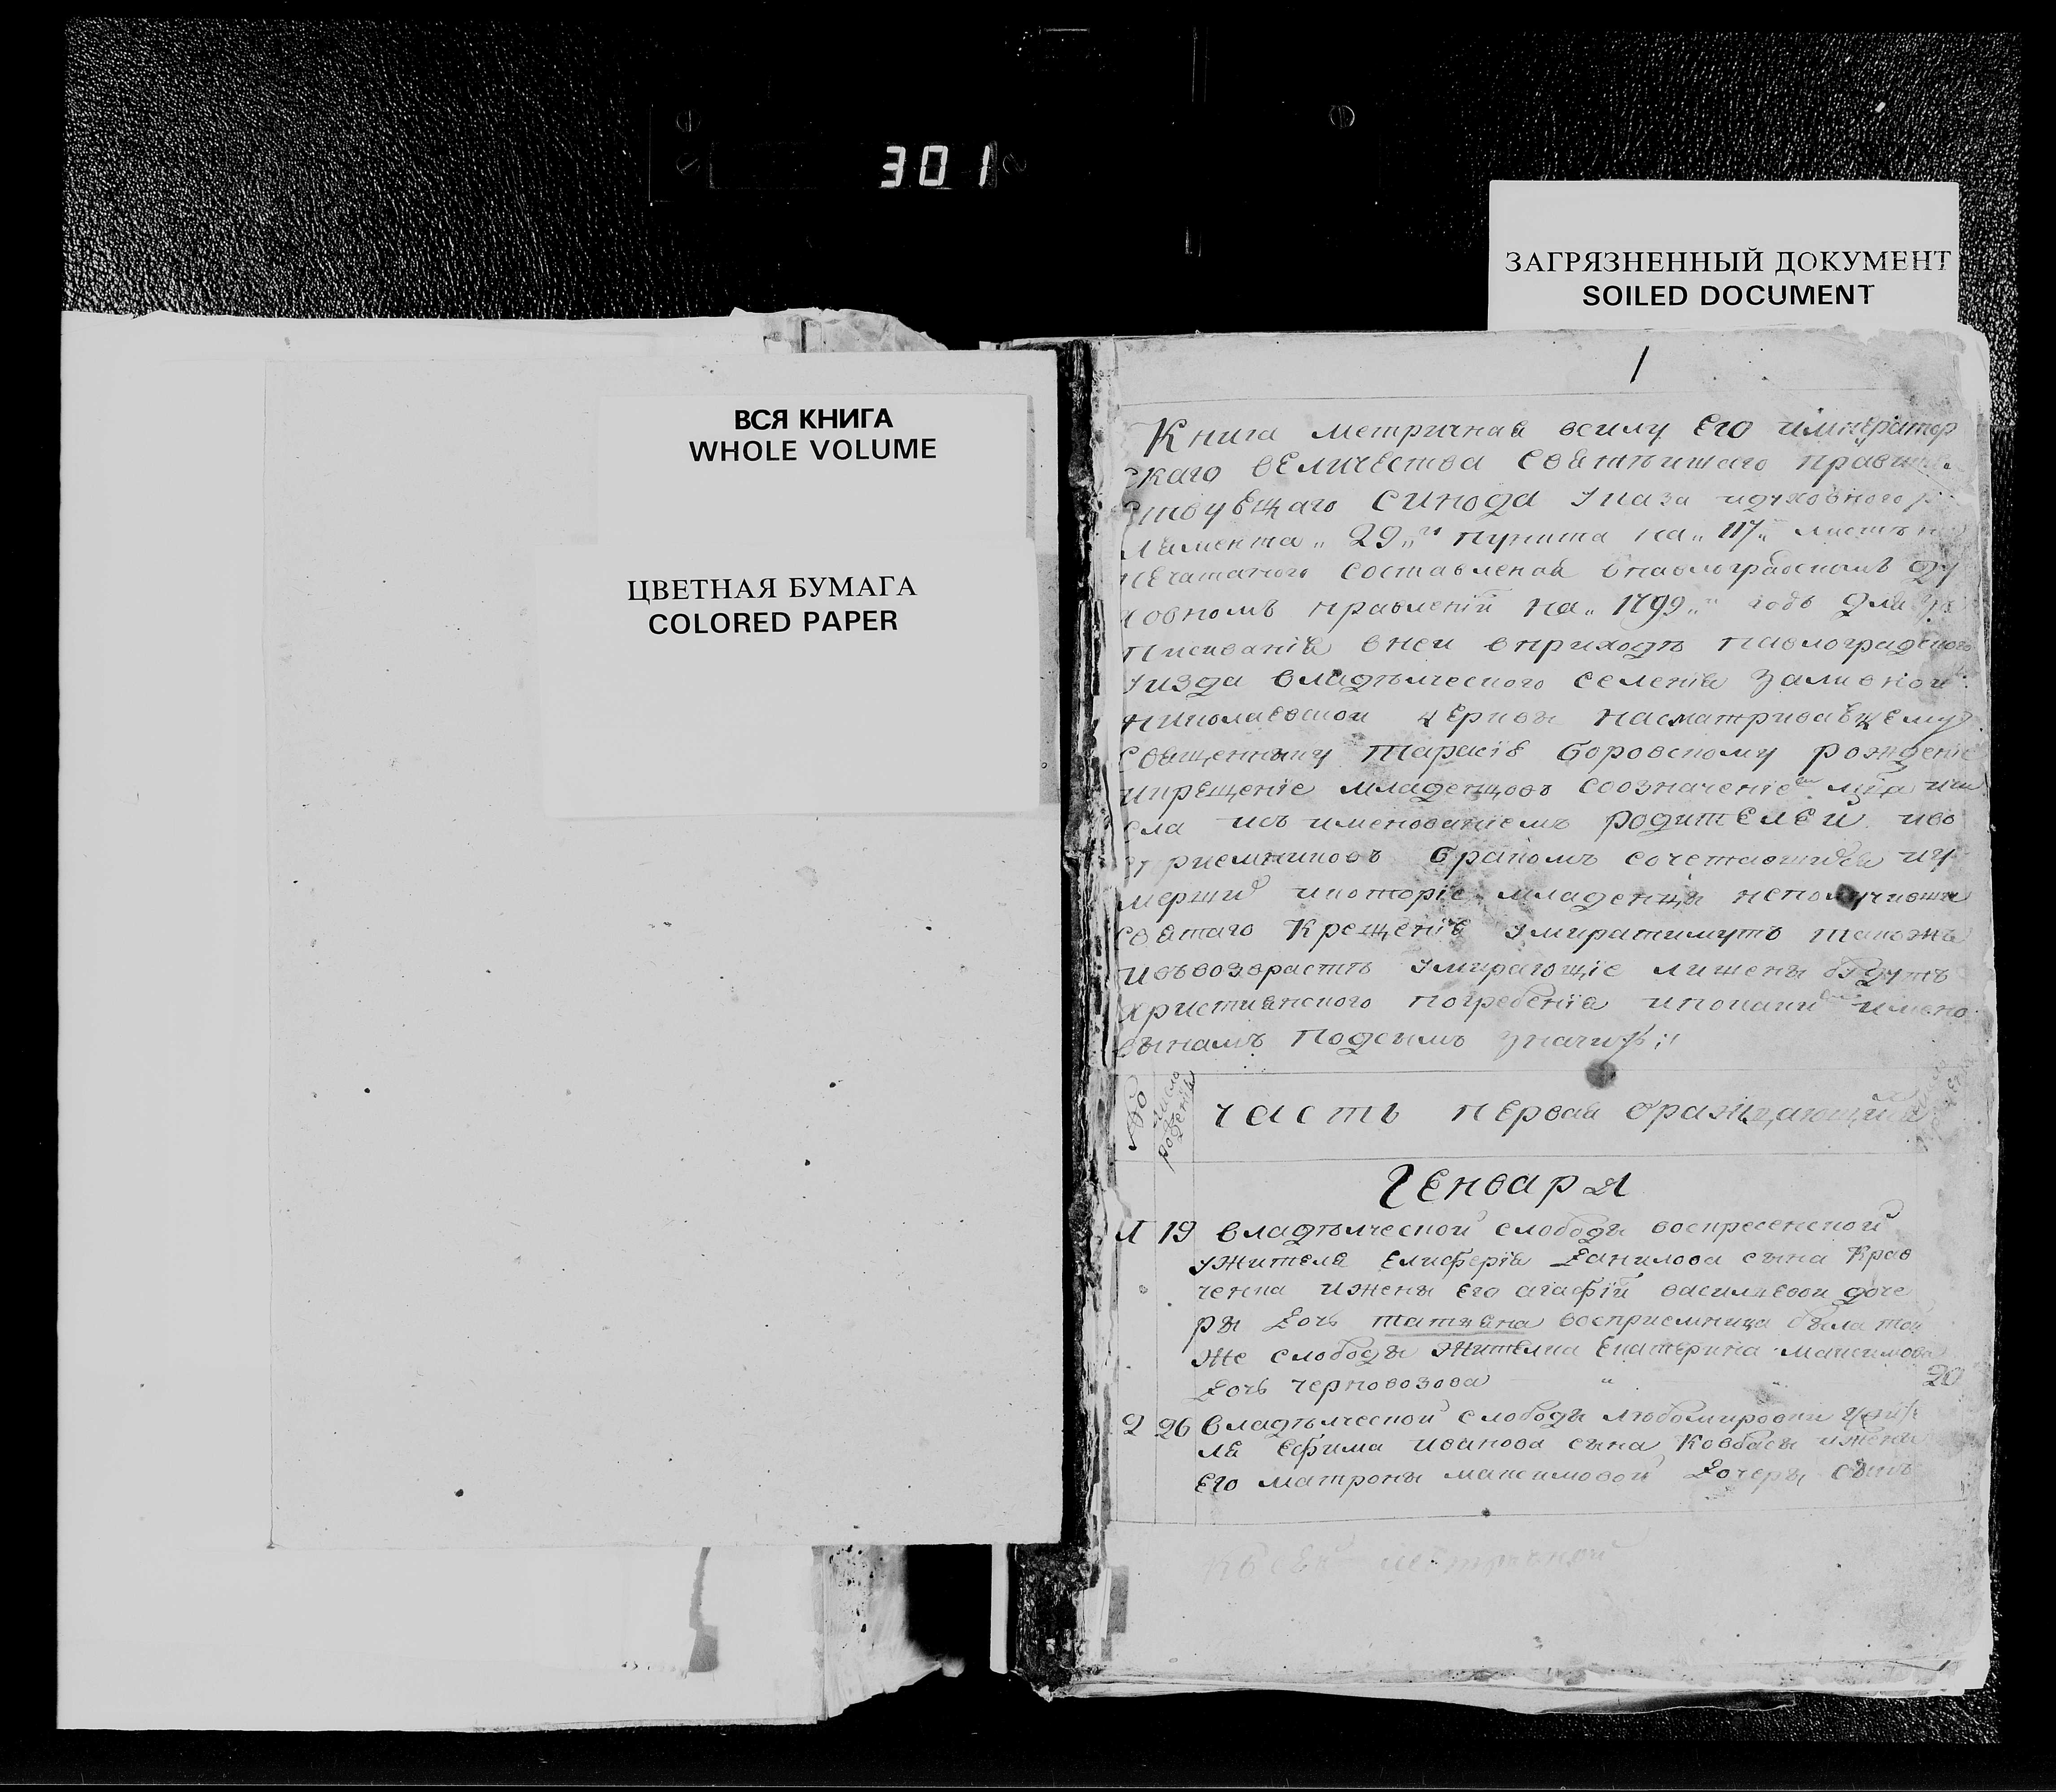 301
ЗАГРЯЗНЕННЫЙ ДОКУМЕНТ
SOILED DOCUMENT
ВСЯ КНИГА
WHOLE VOLUME
ЦВЕТНАЯ БУМАГА
COLORED PAPER
1
Книга метричная всилу Его император
скаго величества святѣишаго
ствующаго синода указа идуховного
ламента „ 29„ го пункта на„ 117„ листѣ
печатаного составленая впавлоградскомъ ду
ховномъ правленіи на„ 1799„ годъ для
писиванія внеи вприходѣ павлоградского
уизда владѣлческого селенія заливной
николаевской церкви насматривающему
священнику тарасію боровскому рожденіе
икрещеніе младенцовъ соозначеніем мца ичи
сла исъ именованіемъ родителеи иво
сприемниковъ бракомъ сочетавшихся иу
мерших икоторіе младенци неполучивши
святаго крещенія умиратимутъ такожъ
ивъвозрастѣ умирающіе лишены будутъ
христианского погребенія имено
подсимъ значитъ
число рожденія
часть первая ораждающихся
Генваря
1 19 владѣлческой слободы воскресенской
ужителя елиферія данилова сына Крав
ченка ижены его агафіи василиевои доче
ры дочь татияна восприемница была той
же слободы жителка екатерина максимова
дочь черновозова „ 20
2 26 владѣлческой слободы любомировки ужите
ля ефима иванова сына Ковбасы ижены
его матроны максимовой дочеры сынъ